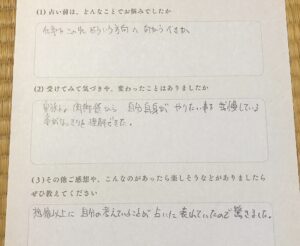 (1) 占い前は、どんなことでお悩みでしたか
仕事を これから どういう方向へ 向かうべきか。
(2) 受けてみて気づきや、変わったことはありましたか
自分自身が やりたい事を 我慢している
理解できた。
(3) その他ご感想や、こんなのがあったら楽しそうなどがありましたら
ぜひ教えてください
想像以上に 自分の考えていることが 占いに 表れていたので 驚きました。